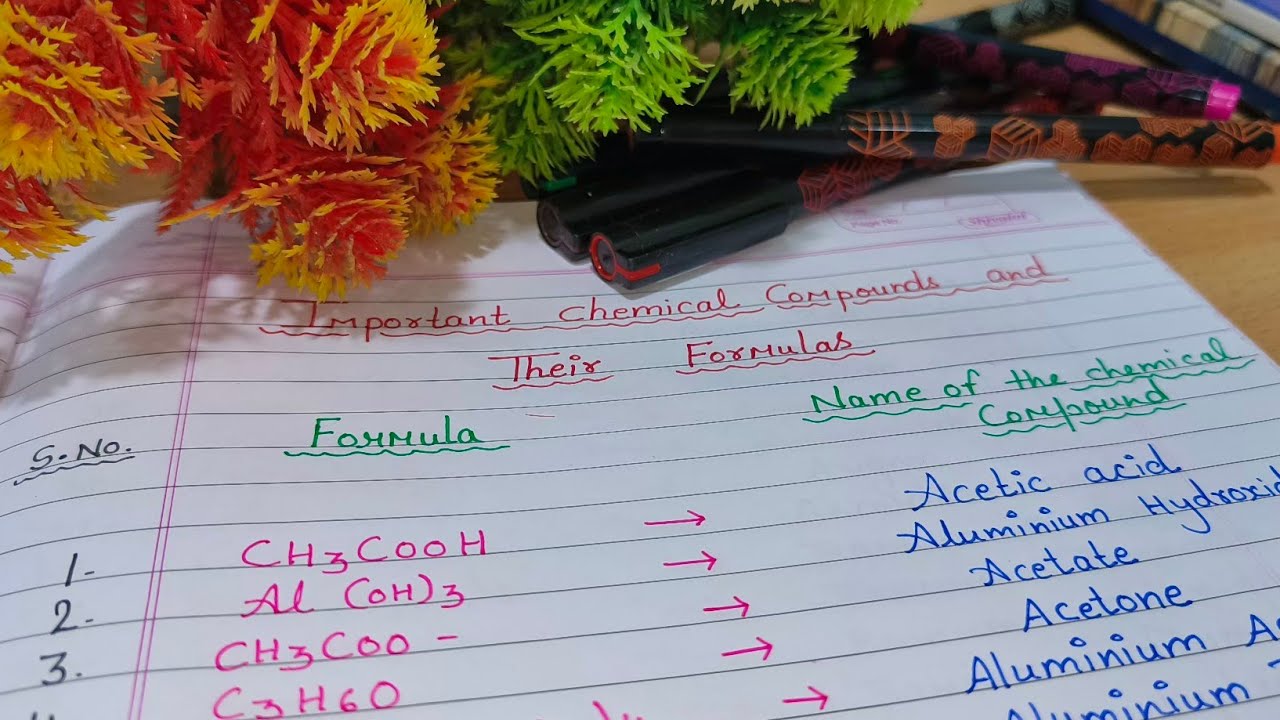 Important chemical Compounds and
Their Formulas
S.No. Formula Name of the chemical
Compound
1. CH3COOH → Acetic acid
2. Al (OH)3 → Aluminium Hydroxid
3. CH3COO - → Acetate
C3H6O → Acetone
→ Aluminium
Aluminium